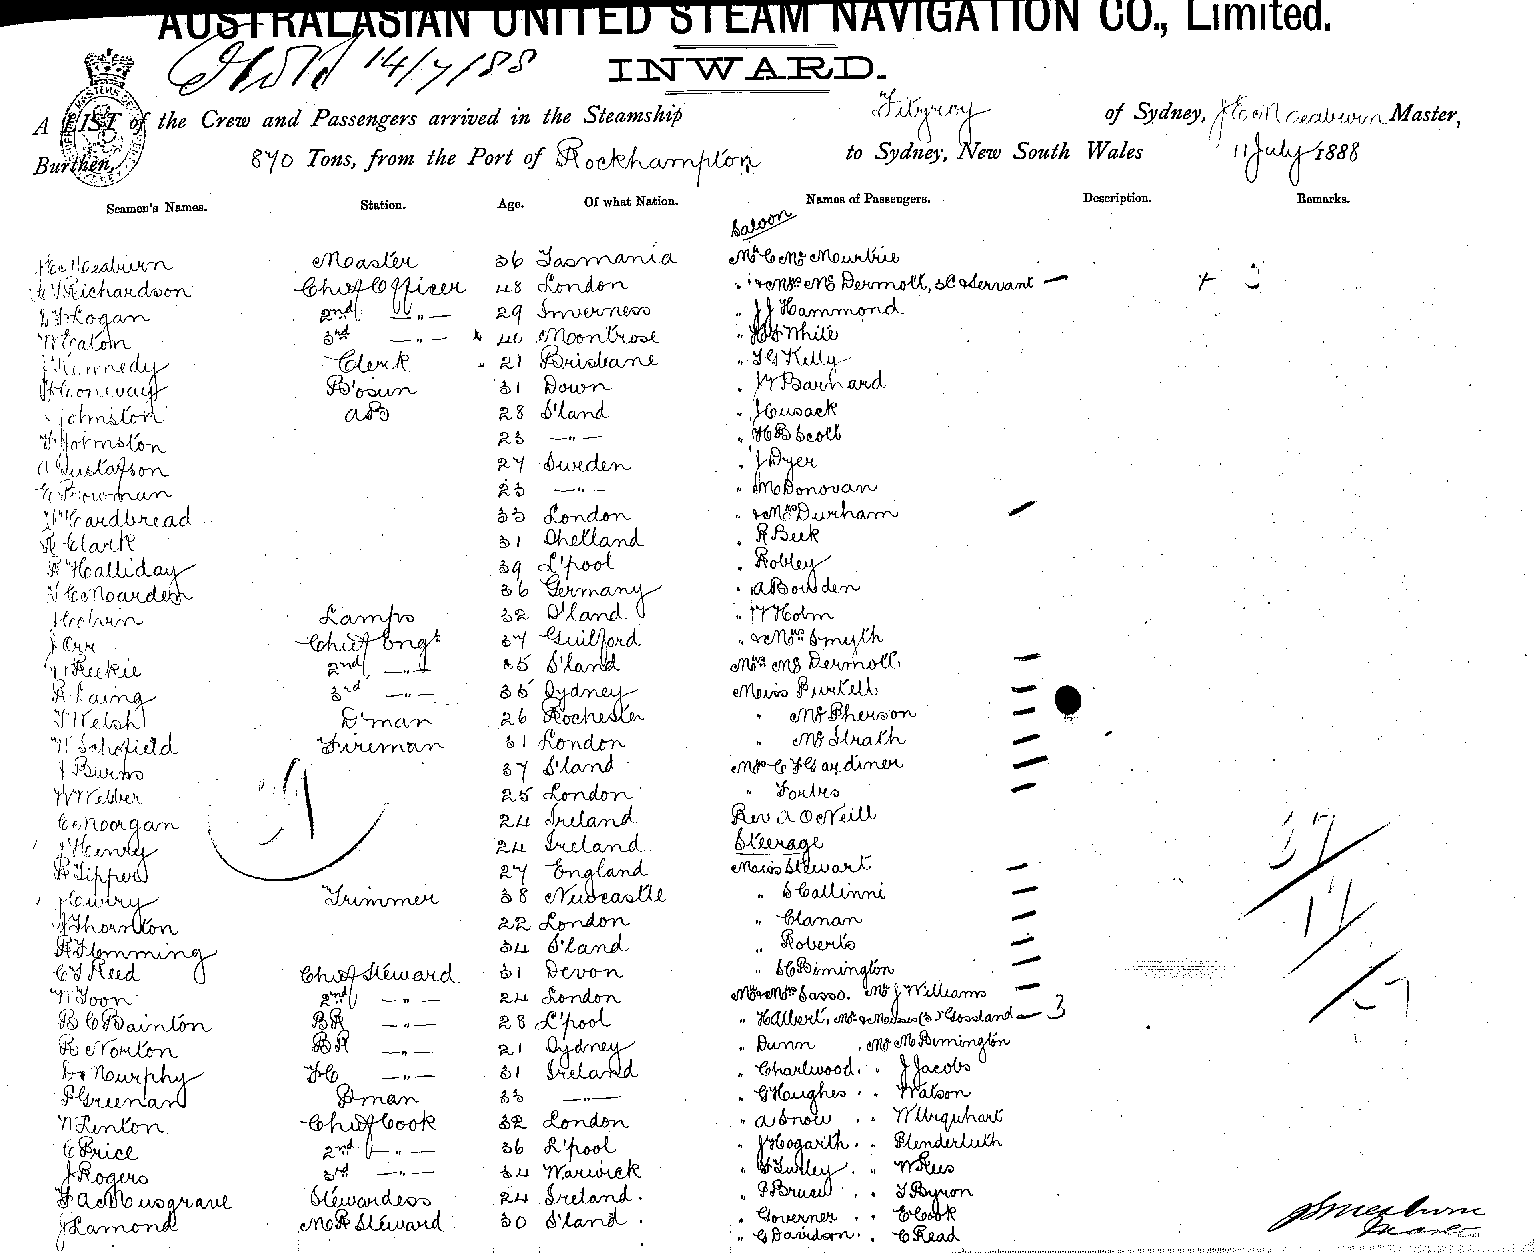 AUSTRALASIAN UNITED STEAM NAVIGATION CO., Limited.
14/7/88 INWARD.
A LIST of the Crew and Passengers arrived in the Steamship Fitzroy of Sydney, Master,
Burthen, 870 Tons, from the Port of Rockhampton to Sydney, New South Wales 11 July 1888
Seamen's Names. Station. Age. Of what Nation. Names of Passengers. Description. Remarks.
Saloon
Master 36 Tasmania
Richardson Chief Officer 48 London " & Mrs McDermott, 3C & Servant —
Logan 2nd —"— 29 Inverness " JJ Hammond
3rd —"— 40 Montrose " White
Kennedy Clerk " 21 Brisbane " Kelly
B'osun 31 Down " Barnard
Johnston AB 28 S'land " J Cusack
Johnston 23 —"— " HB Scott
A Gustafson 27 Sweden " J Dyer
23 —"— " M Donovan
Cardbread 33 London " & Mrs Durham —
Clark 31 Shetland " R Beek
Halliday 39 L'pool " Robley
36 Germany " A Bowden
Lamps 32 S'land " W Holm
J Orr Chief Engr 37 Guilford " & Mrs Smyth
2nd —"— 35 S'land Mrs McDermott —
R Laing 3rd —"— 35 Sydney Miss Purtell —
Welsh D'man 26 Rochester " McPherson —
W Schofield Fireman 31 London " McIlrath —
J Burns 37 S'land Mr C F Gardiner —
W Webber 25 London " Forbes —
C Morgan 24 Ireland Rev A O'Neill
Henry 24 Ireland Steerage
Tipper 27 England Miss Stewart —
Trimmer 38 Newcastle " S Callinni —
J Thornton 22 London " Clanan —
Flemming 34 S'land " Roberts —
C T Reed Chief Steward 31 Devon " S C Bimington —
W Toon 2nd —"— 24 London Mr & Mrs Sasso. Mr J Williams —
B C Bainton BR —"— 28 L'pool " H Albert, — 3
R Norton BR —"— 21 Sydney " Dunn . Mr M Bimington
Murphy FC —"— 31 Ireland " Charlwood . " J Jacobs
P Greenan P'man 33 —"— " G Hughes . " Watson
W Linton Chief Cook 32 London " A Snow . . W Urquhart
C Price 2nd —"— 36 L'pool " J Hogarth . " Plenderleith
J Rogers 3rd —"— 34 Warwick " Turley . " W Rees
F A Musgrave Stewardess 24 Ireland. " P Bruce . . T Byron
J Lamond M R Steward 30 S'land . " Governer . . E Cook
" C Davidson . . C Read
37
11
27